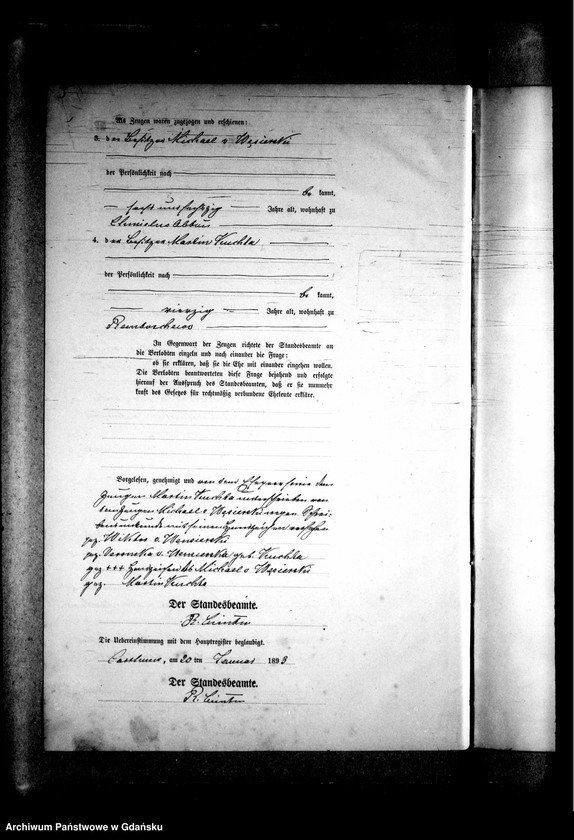 Als Zeugen waren zugezogen und erschienen:
3. der Besitzer Michael v Węsierski
der Persönlichkeit nach
be kannt,
sechs und sechzig Jahre alt, wohnhaft zu
Chmielno Abbau
4. der Besitzer Martin Kuchta
der Persönlichkeit nach
be kannt,
vierzig Jahre alt, wohnhaft zu
In Gegenwart der Zeugen richtete der Standesbeamte an
die Verlobten einzeln und nach einander die Frage:
ob sie erklären, daß sie die Ehe mit einander eingehen wollen.
Die Verlobten beantworteten diese Frage bejahend und erfolgte
hierauf der Ausspruch des Standesbeamten, daß er sie nunmehr
kraft des Gesetzes für rechtmäßig verbundene Eheleute erkläre.
Vorgelesen, genehmigt und von dem Ehepaar sowie dem
Zeugen Martin Kuchta unterschrieben von
dem Zeugen Michael v Węsierski wegen Schrei-
bensunkunde mit seinem Handzeichen versehen
gez. v. Węsierski
gez. Veronika v. geb. Kuchta
gez +++ Handzeichen des Michael v Węsierski
gez. Martin Kuchta
Der Standesbeamte.
Die Uebereinstimmung mit dem Hauptregister beglaubigt.
Carthaus, am 20 ten Januar 1893
Der Standesbeamte.
Archiwum Państwowe w Gdańsku